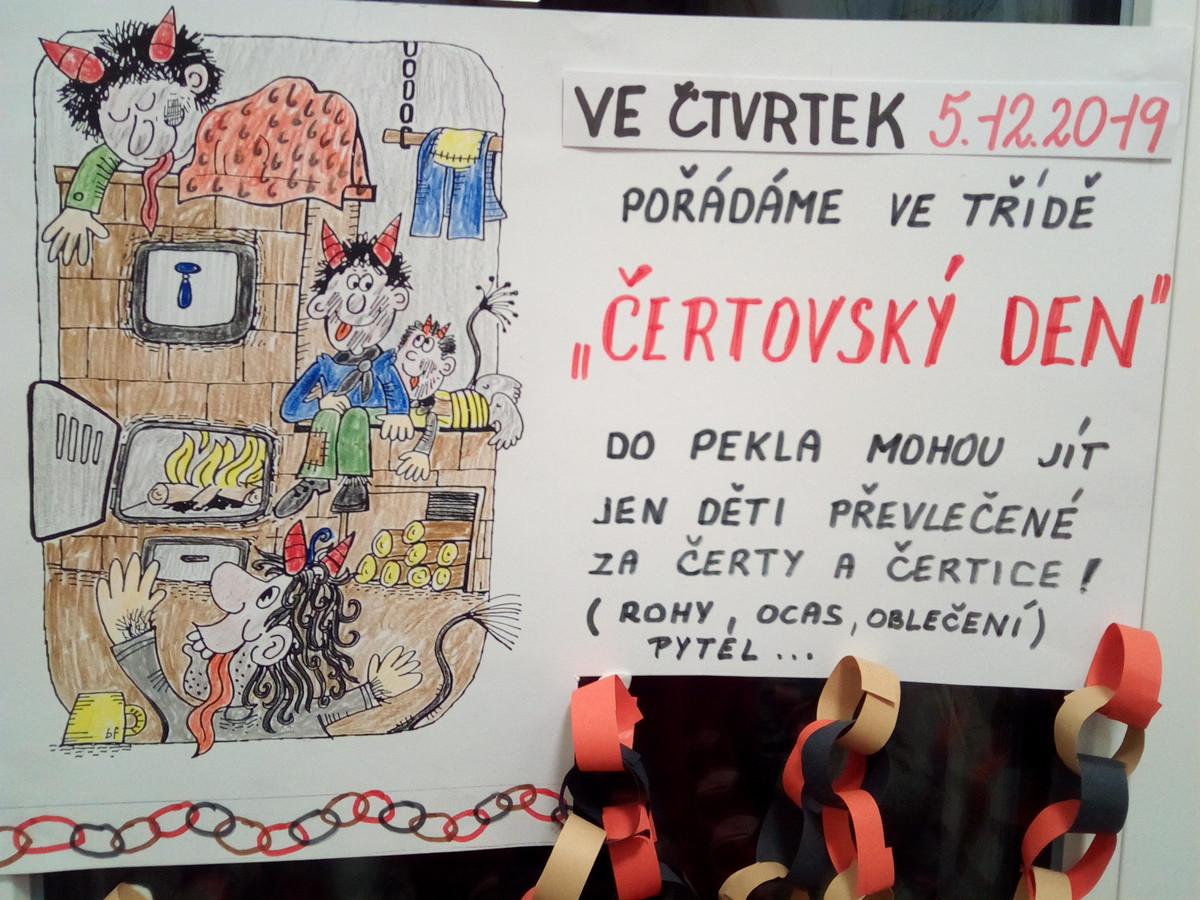 VE ČTVRTEK 5.12.2019
POŘÁDÁME VE TŘÍDĚ
„ČERTOVSKÝ DEN"
DO PEKLA MOHOU JÍT
JEN DĚTI PŘEVLEČENÉ
ZA ČERTY A ČERTICE!
(ROHY, OCAS, OBLEČENÍ)
PYTEL...
bF